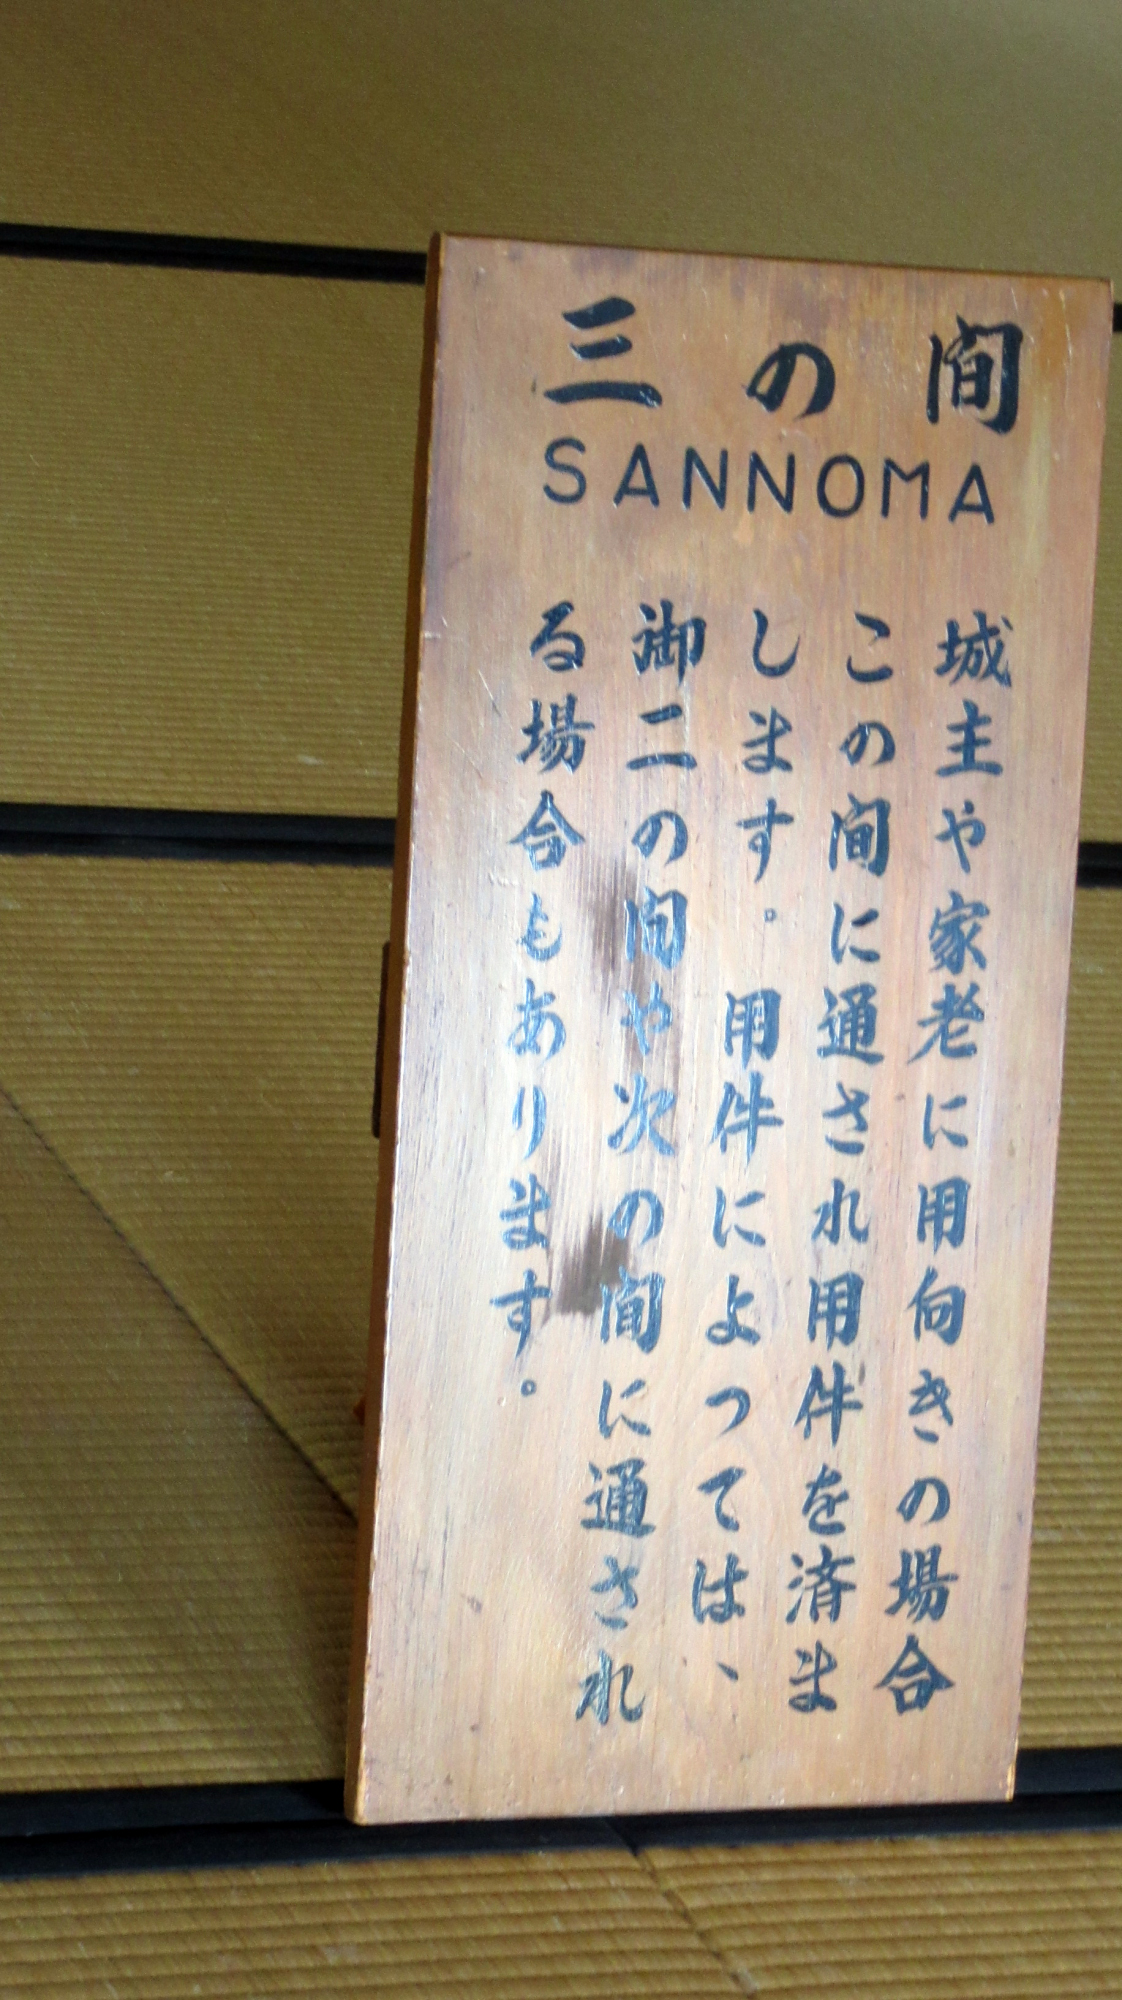 三の間
SANNOMA
城主や家老に用向きの場合
この間に通され用件を済ま
します。用件によっては、
御二の間や次の間に通され
る場合もあります。